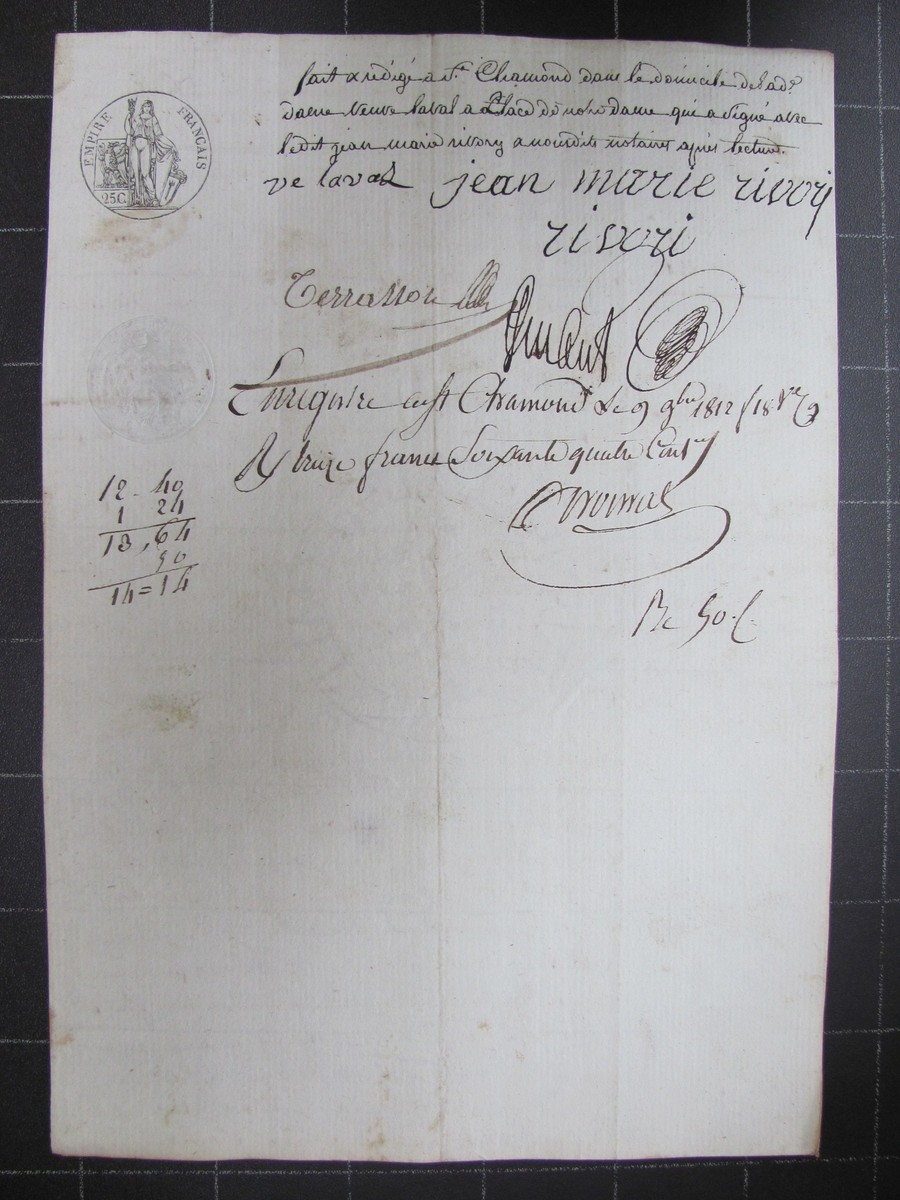 EMPIRE FRANÇAIS
25C.
fait & redigé a St. Chamond dans le domicile de lad.
dame veuve laval a place de notre dame qui a signé avec
ledit jean marie rivory a nousdits notaires après lecture.
ve laval jean marie rivori
rivori
Terrasson
finant
Enregistré à St Chamond le 9 9bre 1812 f 18
R treize francs Soixante quatre Cent
12 - 40
1 24
13, 64
50
14 = 14
50. C.